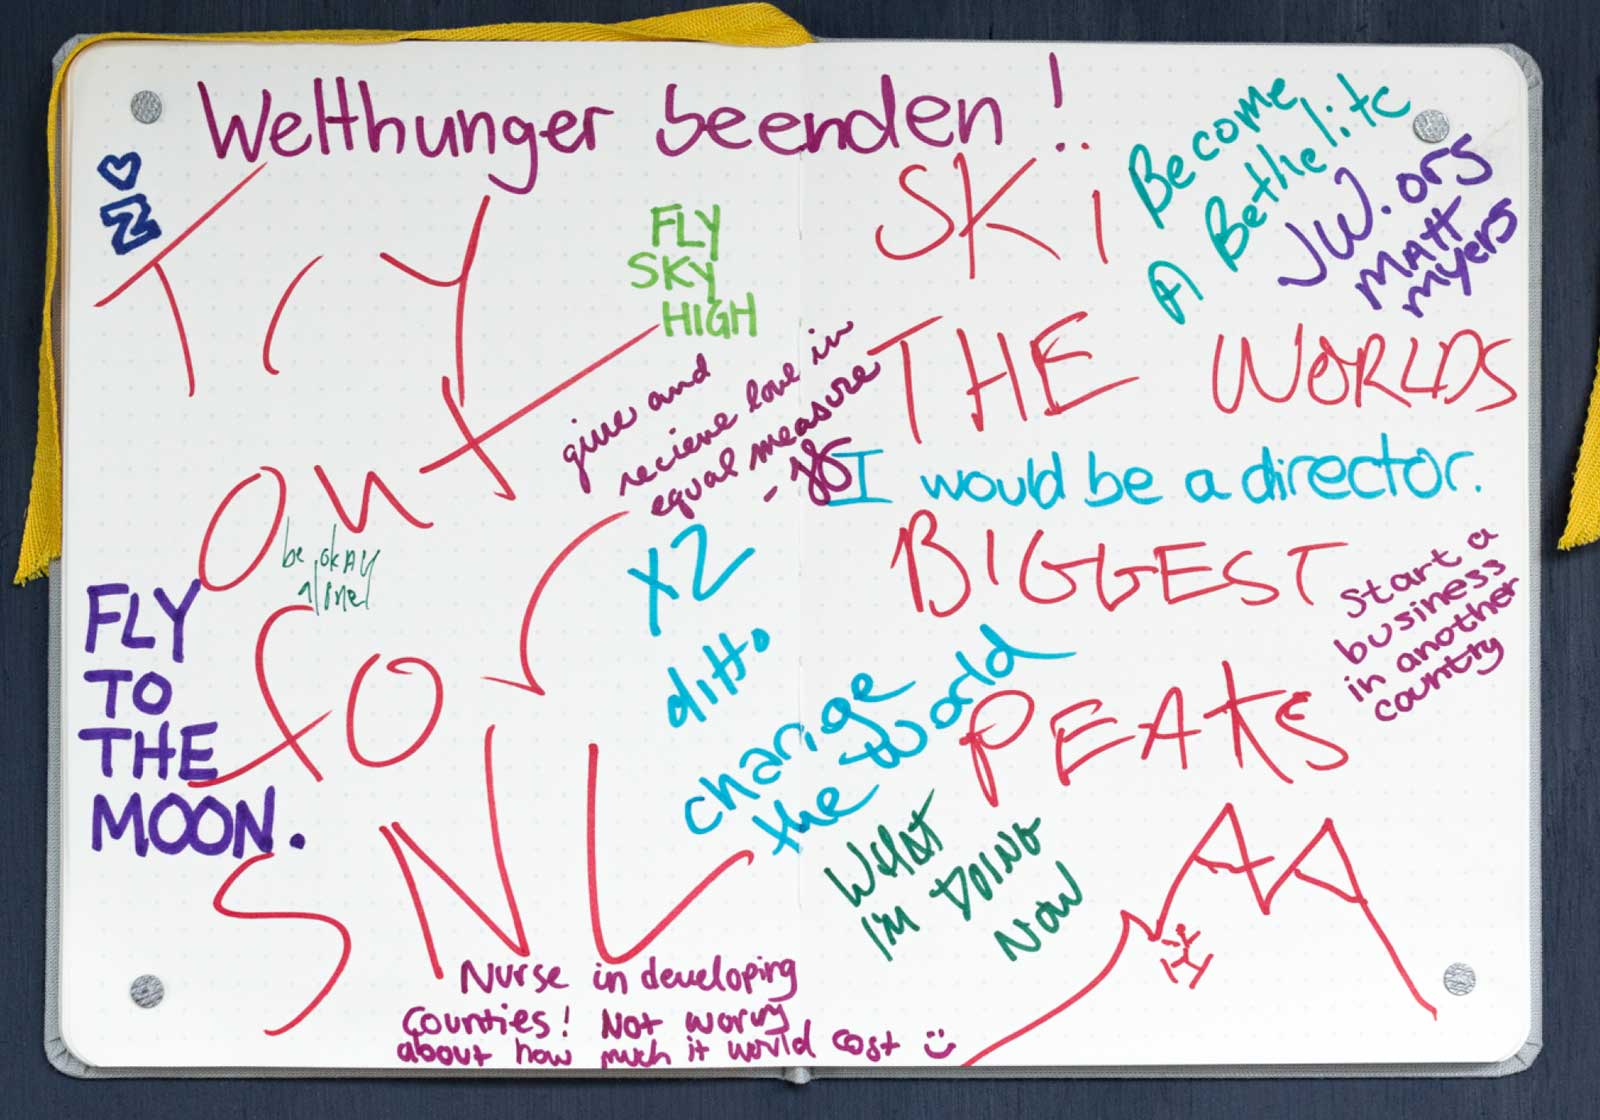 Welthunger beenden!
♡
Z
Try
out
for
SNL
FLY
SKY
HIGH
give and
recieve love in
equal measure
be okay
alone
FLY
TO
THE
MOON.
x2
ditto
change
the world
What
I'm Doing
Now
Nurse in developing
Counties! Not worry
about how much it would cost
Become
A Bethelite
JW.org
Matt
Myers
SKi
THE WORLDS
BIGGEST
PEAKS
I would be a director.
Start a
business
in another
country